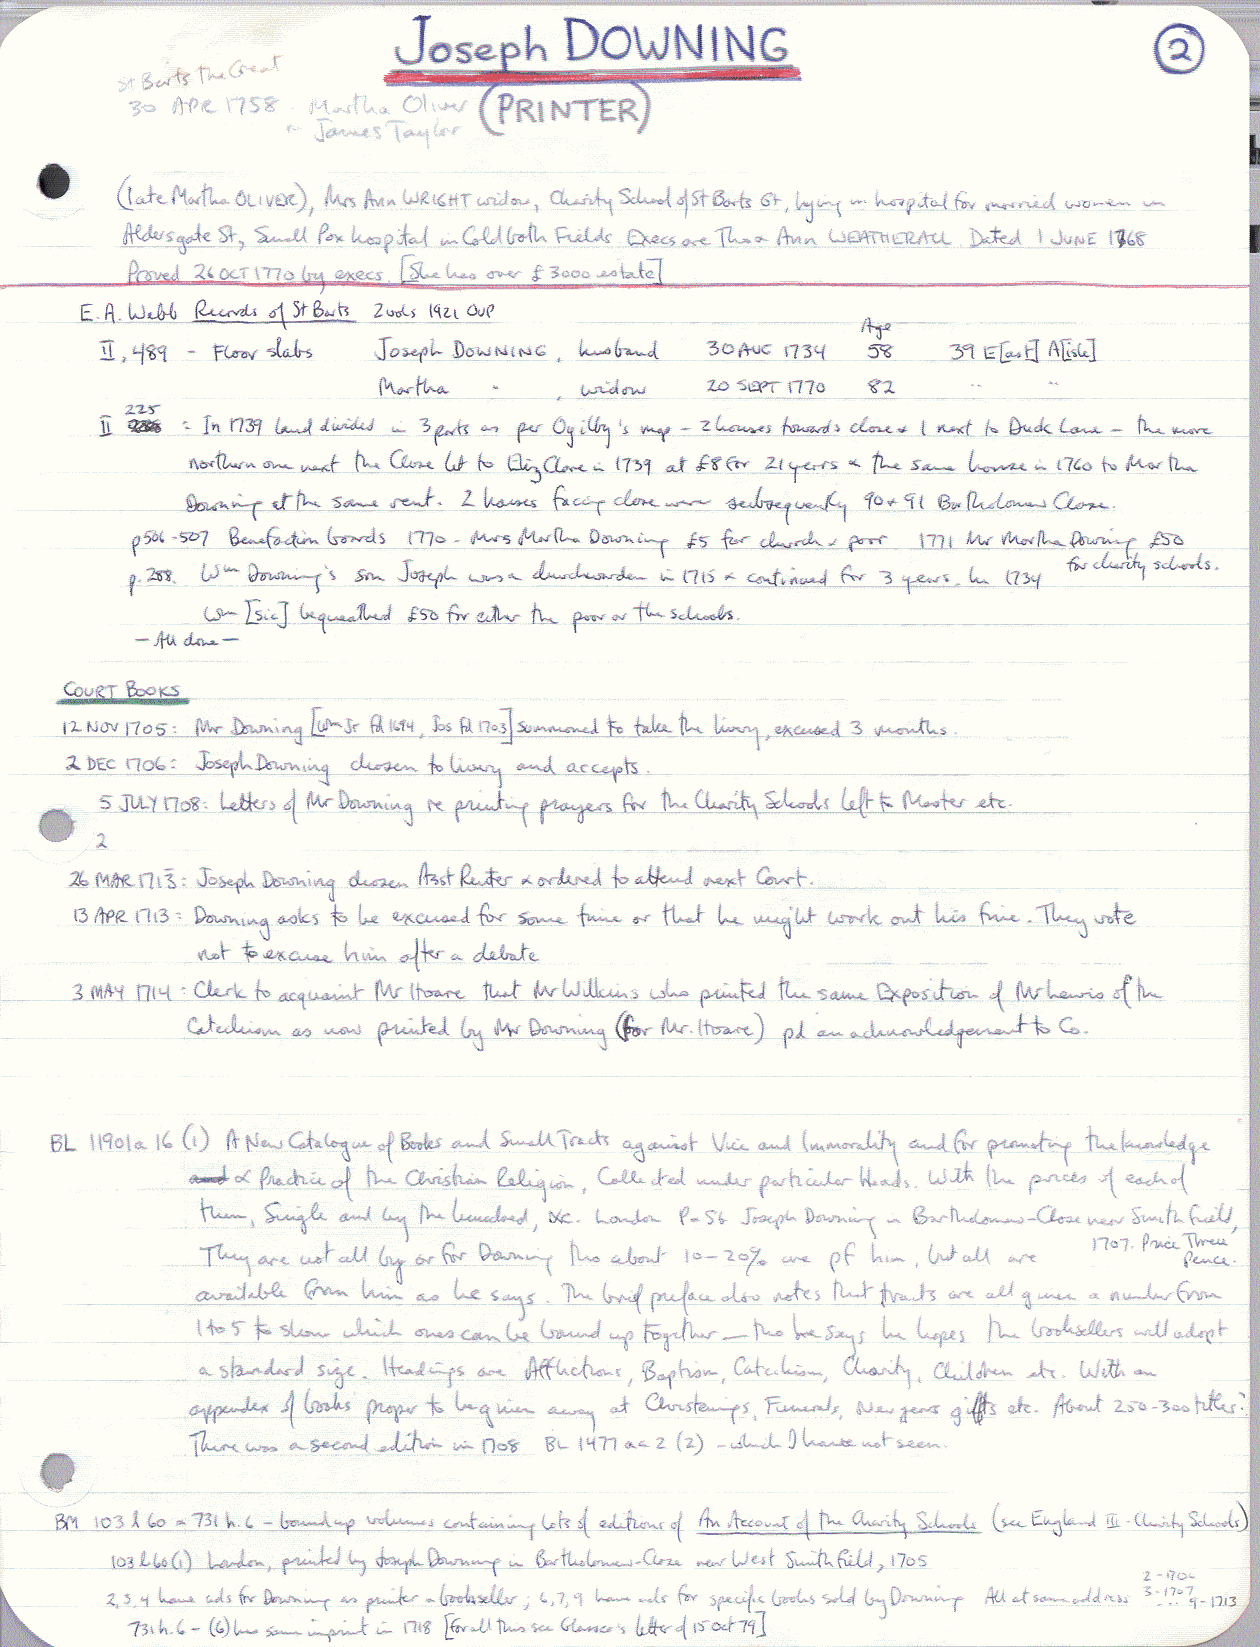 Joseph DOWNING
2
(PRINTER)
St Barts the Great
30 APR 1758 - Martha Oliver
m James Taylor
(late Martha OLIVER), Mrs Ann WRIGHT widow, Charity School of St Barts Gt, lying in hospital for married women in
Aldersgate St, Small Pox hospital in Coldbath Fields. Execs are Thos & Ann WEATHERALL Dated 1 JUNE 1768
Proved 26 OCT 1770 by execs. [She has over £3000 estate]
E.A. Webb Records of St Barts 2 vols 1921 OUP
Age
II, 489 - Floor slabs Joseph DOWNING, husband 30 AUG 1734 58 39 E[ast] A[isle]
Martha " , widow 20 SEPT 1770 82 " "
225
II = In 1739 land divided in 3 parts as per Ogilby's map - 2 houses towards close & 1 next to Duck Lane - the more
northern one next the Close let to Eliz Clare in 1739 at £8 for 21 years & the same house in 1760 to Martha
Downing at the same rent. 2 houses facing close were subsequently 90 & 91 Bartholomew Close.
p506-507 Benefaction boards 1770 - Mrs Martha Downing £5 for church & poor 1771 Mr Martha Downing £50
for charity schools.
p. 288. Wm Downing's son Joseph was a churchwarden in 1715 & continued for 3 years. In 1734
Wm [sic] bequeathed £50 for either the poor or the schools.
- All done -
COURT BOOKS
12 NOV 1705: Mr Downing [Wm Jr Fd 1694, Jos Fd 1703] summoned to take the livery, excused 3 months.
2 DEC 1706: Joseph Downing chosen to livery and accepts.
5 JULY 1708: Letters of Mr Downing re printing prayers for the Charity Schools left to Master etc.
2
26 MAR 1713: Joseph Downing chosen Asst Renter & ordered to attend next Court.
13 APR 1713: Downing asks to be excused for some time or that he might work out his fine. They vote
not to excuse him after a debate
3 MAY 1714: Clerk to acquaint Mr Hoare that Mr Wilkins who printed the same Exposition of Mr Lewis of the
Catechism as now printed by Mr Downing (for Mr. Hoare) pd an acknowledgement to Co.
BL 11901a 16 (1) A New Catalogue of Books and Small Tracts against Vice and Immorality and for promoting the knowledge
and & Practice of the Christian Religion, Collected under particular Heads. With the prices of each of
them, Single and by the hundred, &c. London P & Sb Joseph Downing in Bartholomew-Close near Smithfield,
1707. Price Three
pence.
They are not all by or for Downing tho about 10-20% are pf him, but all are
available from him as he says. The brief preface also notes that tracts are all given a number from
1 to 5 to show which ones can be bound up together - tho he says he hopes the booksellers will adopt
a standard size. Headings are Afflictions, Baptism, Catechism, Charity, Children etc. With an
appendix of books proper to be given away at Christenings, Funerals, New years gifts etc. About 250-300 titles?
There was a second edition in 1708 BL 1477 aa 2 (2) - which I have not seen.
BM 103 l 60 & 731 h. 6 - bound up volumes containing lots of editions of An Account of the Charity Schools (see England III - Charity Schools)
103 l 60 (1) London, printed by Joseph Downing in Bartholomew-Close near West Smithfield, 1705
2, 3, 4 have ads for Downing as printer & bookseller; 6, 7, 9 have ads for specific books sold by Downing All at same address
2 - 1706
3 - 1707
... 9 - 1713
731 h. 6 - (6) has same imprint in 1718 [For all this see Glasser's letter of 15 Oct 79]